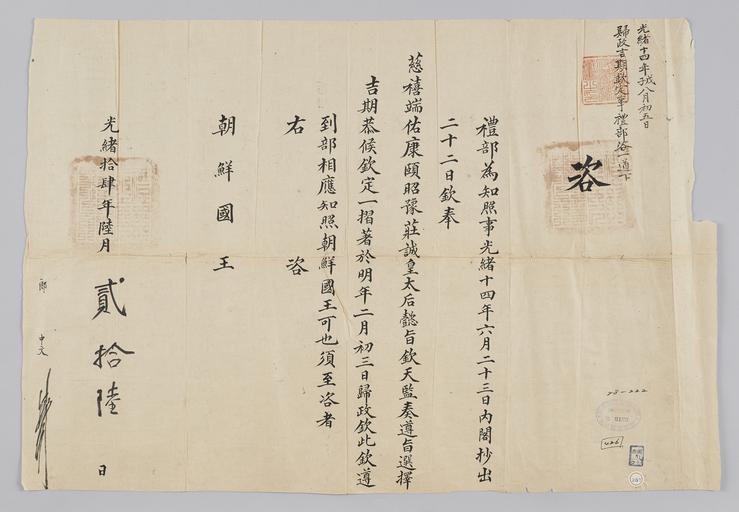 光緒十四年戊子八月初五日
歸政吉期欽定事禮部咨一道下
咨
禮部為知照事光緒十四年六月二十三日內閣抄出
二十二日欽奉
慈禧端佑康頤昭豫莊誠皇太后懿旨欽天監奏遵旨選擇
吉期恭候欽定一摺著於明年二月初三日歸政欽此欽遵
到部相應知照朝鮮國王可也須至咨者
右咨
朝鮮國王
光緒拾肆年陸月貳拾陸日
郎中文
78-222
426
267